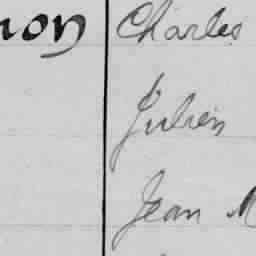 non Charles
Julien
Jean M